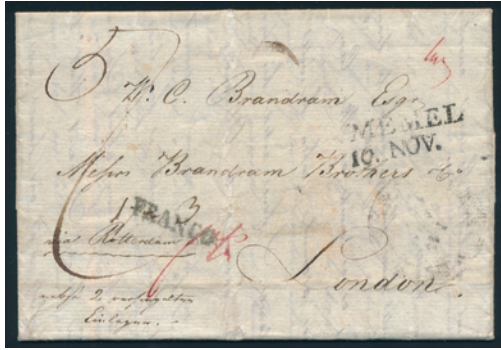 W. C. Brandram Esqr
MEMEL
10. NOV.
Messrs Brandram Brothers & Co
1 3
FRANCO
via Rotterdam
London
nebst 2 versiegelten
Einlagen.